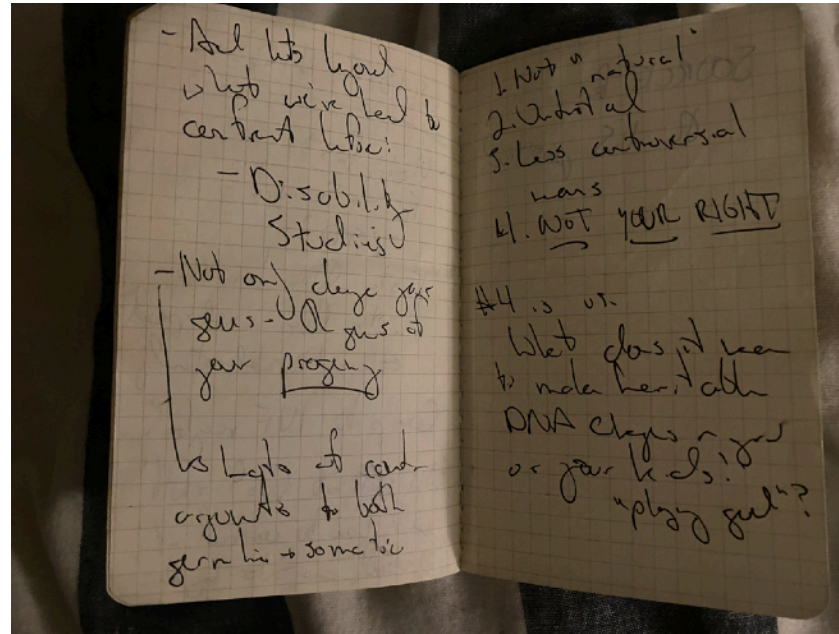 - And lots beyond
what we've had to
confront before:
- Disability
Studies
- Not only change your
genes - OR genes of
your progeny
↳ Lots of
arguments to both
germline → somatic
1. Not "natural"
2. 
3. Less controversial
means
4. NOT YOUR RIGHT
#4 is
What does it mean
to make heritable
DNA changes in you
or your kids?
"playing god"?